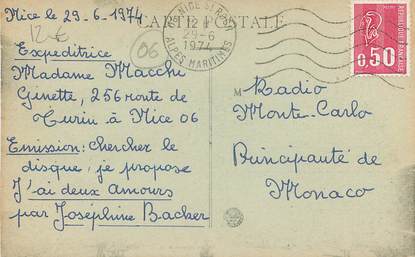 Nice le 29-6-1974
12€
06
CARTE POSTALE
NICE ST ROCH
12H
29-6
1974
ALPES MARITIMES
REPUBLIQUE FRANCAISE
0,50
Expeditrice
Madame Macchi
Ginette, 256 route de
Turin à Nice 06
Emission: chercher le
disque, je propose
J'ai deux Amours
par Joséphine Backer
M
Radio
Monte-Carlo
Principauté de
Monaco